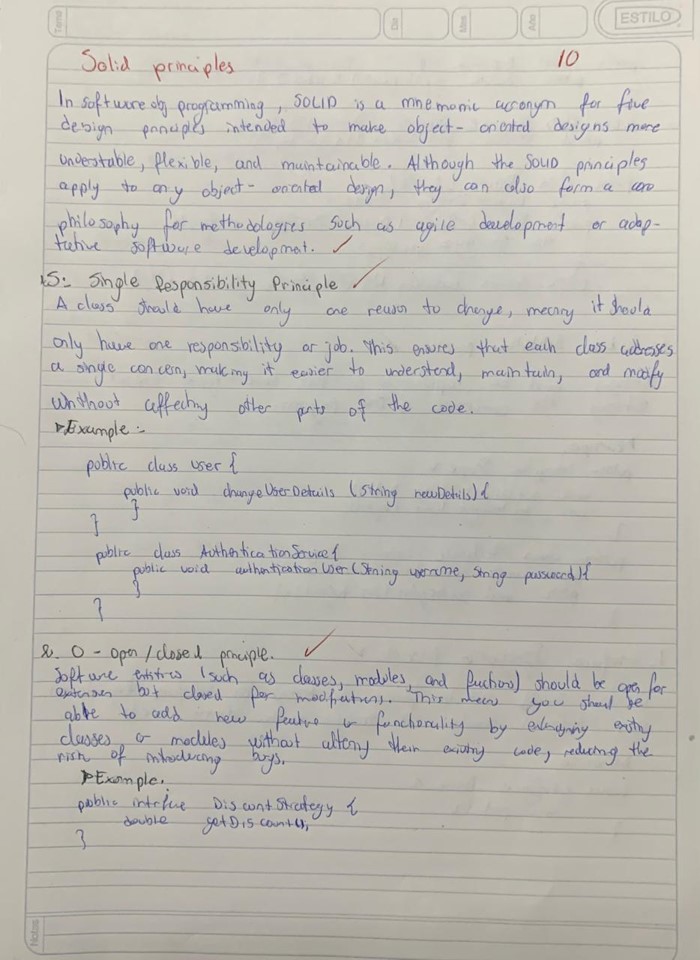 Tema
Día
Mes
Año
ESTILO
Solid principles
10
In software obj programming, SOLID is a mnemonic acronym for five
design principles intended to make object-oriented designs more
understable, flexible, and maintainable. Although the SOLID principles
apply to any object-oriented design, they can also form a core
philosophy for methodologies such as agile development or adap-
tative software development.
1.S: Single Responsibility Principle
A class should have only one reason to change, meaning it should
only have one responsibility or job. This ensures that each class addresses
a single concern, making it easier to understand, maintain, and modify
without affecting other parts of the code.
Example:-
public class User {
public void changeUserDetails (String newDetails) {
}
}
public class AuthenticationService {
public void authenticationUser (String username, String password) {
}
}
2. O - open/closed principle.
Software entities (such as classes, modules, and functions) should be open for
but closed for This means you should be
able to add new or functionality by existing
classes or modules without altering their existing code, reducing the
risk of introducing bugs.
Example.
public DiscountStrategy {
double
}
Notas